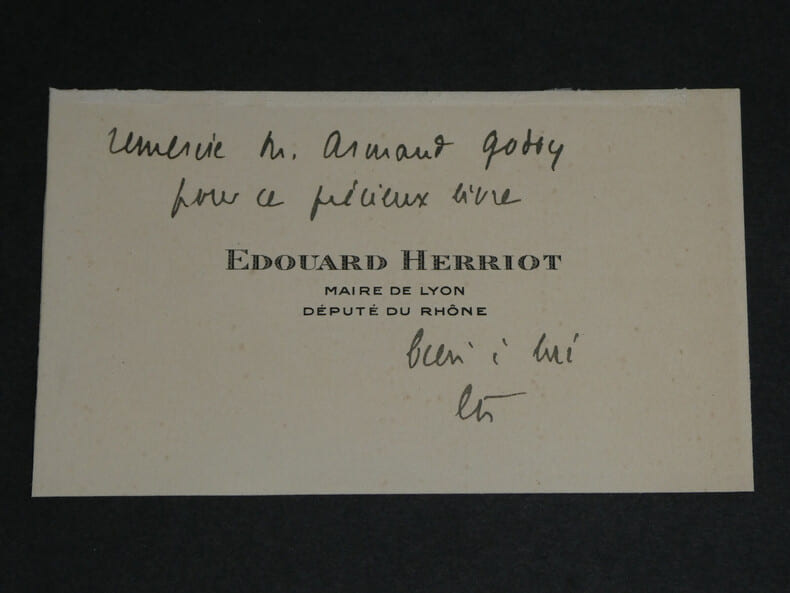 remercie M. Armand Godoy
pour ce précieux livre
EDOUARD HERRIOT
MAIRE DE LYON
DÉPUTÉ DU RHÔNE
bien à lui